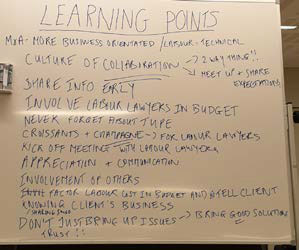 LEARNING POINTS
M&A - MORE BUSINESS ORIENTATED / LABOUR - TECHNICAL
CULTURE OF COLLABORATION → 2 WAY THING!!
→ MEET UP + SHARE
EXPECTATIONS
SHARE INFO EARLY
INVOLVE LABOUR LAWYERS IN BUDGET
NEVER FORGET ABOUT TUPE
CROISSANTS + CHAMPAGNE → FOR LABOUR LAWYERS
KICK OFF MEETING WITH LABOUR LAWYERS
APPRECIATION + COMMUNICATION
INVOLVEMENT OF OTHERS
FACTOR LABOUR COST IN BUDGET AND TELL CLIENT
KNOWING CLIENT'S BUSINESS
DON'T JUST BRING UP ISSUES → BRING GOOD SOLUTION
TRUST!!